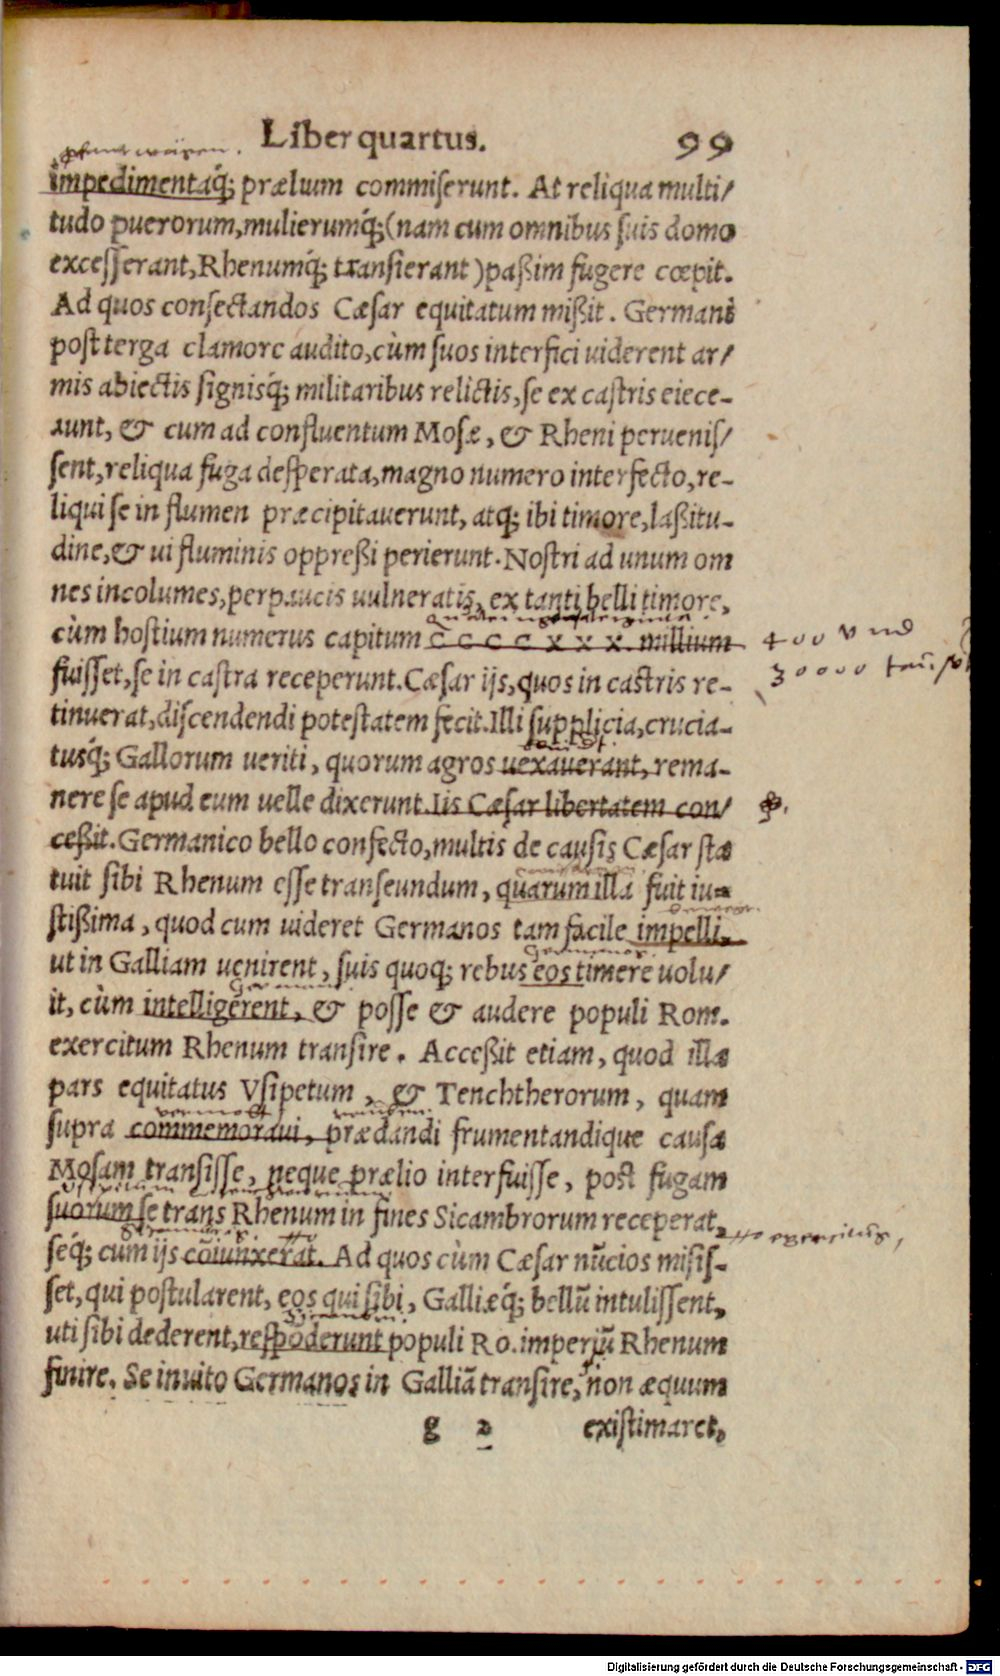 Liber quartus. 99
impedimentaq́; prælium commiserunt. At reliqua multi/
tudo puerorum, mulierumq́; (nam cum omnibus suis domo
excesserant, Rhenumq́; transierant) paßim fugere cœpit.
Ad quos consectandos Cæsar equitatum mißit. Germani
post terga clamore audito, cùm suos interfici uiderent ar/
mis abiectis signisq́; militaribus relictis, se ex castris eiece-
runt, & cum ad confluentum Mosæ, & Rheni peruenis/
sent, reliqua fuga desperata, magno numero interfecto, re-
liqui se in flumen præcipitauerunt, atq; ibi timore, laßitu-
dine, & ui fluminis oppreßi perierunt. Nostri ad unum om
nes incolumes, perpaucis uulneratis, ex tanti belli timore,
cùm hostium numerus capitum c c c c x x x. millium
400 und
30000
fuisset, se in castra receperunt. Cæsar ijs, quos in castris re-
tinuerat, discendendi potestatem fecit. Illi supplicia, crucia-
tusq́; Gallorum ueriti, quorum agros uexauerant, rema-
nere se apud eum uelle dixerunt. Iis Cæsar libertatem con/
ceßit. Germanico bello confecto, multis de causis Cæsar sta
tuit sibi Rhenum esse transeundum, quarum illa fuit iu-
stißima, quod cum uideret Germanos tam facile impelli,
Germanos.
ut in Galliam uenirent, suis quoq; rebus eos timere uolu/
Germani
it, cùm intelligerent, & posse & audere populi Rom.
exercitum Rhenum transire. Acceßit etiam, quod illa
pars equitatus Vsipetum, & Tenchtherorum, quam
supra commemoraui, prædandi frumentandique causa
Mosam transisse, neque prælio interfuisse, post fugam
suorum se trans Rhenum in fines Sicambrorum receperat,
seq́; cum ijs cõiunxerat. Ad quos cùm Cæsar nũcios misis-
set, qui postularent, eos qui sibi, Galliæq́; bellũ intulissent,
uti sibi dederent, respõderunt populi Ro. imperiũ Rhenum
finire. Se inuito Germanos in Galliã transire, non æquum
g 2 existimaret,
Digitalisierung gefördert durch die Deutsche Forschungsgemeinschaft - DFG